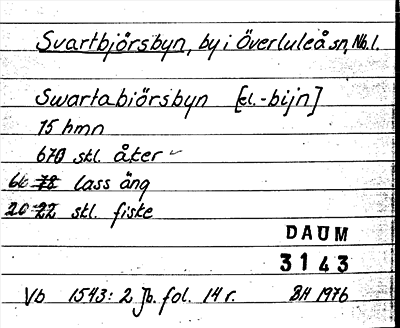 Svartbjörsbyn, by i Överluleå sn, Nb. l.
Swartabiörsbyn [el. -bijn]
15 hmn
670 skl. åker
66 78 lass äng
20 22 skl. fiske
DAUM
3143
Vb 1543: 2 Jb. fol. 14 r. BH 1976